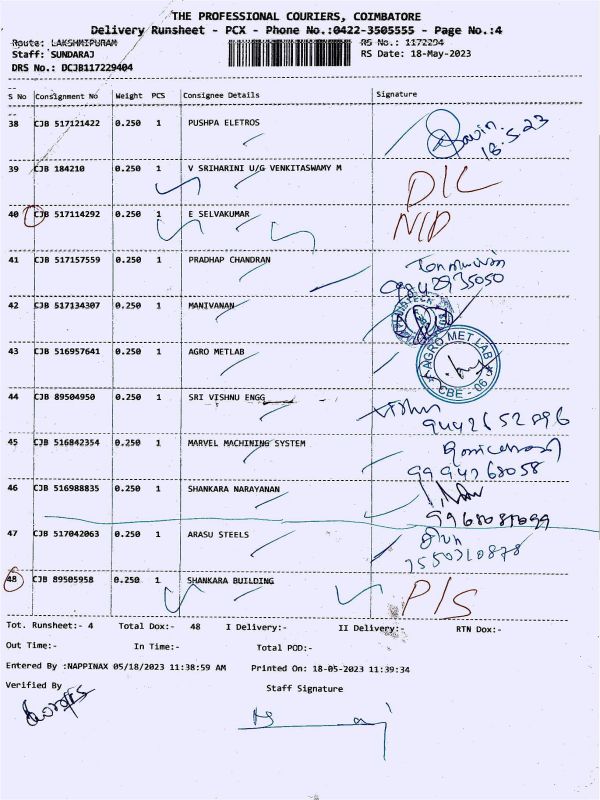 THE PROFESSIONAL COURIERS, COIMBATORE
Delivery Runsheet - PCX - Phone No.:0422-3505555 - Page No.:4
Route: LAKSHMIPURAM RS No.: 1172294
Staff: SUNDARAJ RS Date: 18-May-2023
DRS No.: DCJB117229404
S No Consignment No Weight PCS Consignee Details Signature
38 CJB 517121422 0.250 1 PUSHPA ELETROS
18.5.23
39 CJB 184210 0.250 1 V SRIHARINI U/G VENKITASWAMY M D/L
40 CJB 517114292 0.250 1 E SELVAKUMAR N/D
41 CJB 517157559 0.250 1 PRADHAP CHANDRAN
9942935050
42 CJB 517134307 0.250 1 MANIVANAN
43 CJB 516957641 0.250 1 AGRO METLAB AGRO MET LAB CBE - 06
44 CJB 89504950 0.250 1 SRI VISHNU ENGG
9442652896
45 CJB 516842354 0.250 1 MARVEL MACHINING SYSTEM
9994768058
46 CJB 516988835 0.250 1 SHANKARA NARAYANAN
47 CJB 517042063 0.250 1 ARASU STEELS
7550310878
48 CJB 89505958 0.250 1 SHANKARA BUILDING P/S
Tot. Runsheet:- 4 Total Dox:- 48 I Delivery:- II Delivery:- RTN Dox:-
Out Time:- In Time:- Total POD:-
Entered By :NAPPINAX 05/18/2023 11:38:59 AM Printed On: 18-05-2023 11:39:34
Verified By Staff Signature